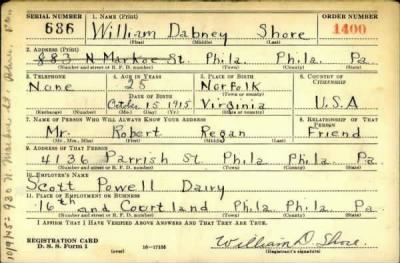 SERIAL NUMBER 1. NAME (Print) ORDER NUMBER
686 William Dabney Shore 1400
(First) (Middle) (Last)
2. ADDRESS (Print)
883 N Markoe St. Phila. Phila. Pa.
(Number and street or R. F. D. number) (Town) (County) (State)
3. TELEPHONE 4. AGE IN YEARS 5. PLACE OF BIRTH 6. COUNTRY OF CITIZENSHIP
None 25 Norfolk
DATE OF BIRTH
Octber 15 1915 Virginia U.S.A
(Mo.) (Day) (Yr.) (State or country)
7. NAME OF PERSON WHO WILL ALWAYS KNOW YOUR ADDRESS 8. RELATIONSHIP OF THAT PERSON
Mr. Robert Regan Friend
(Mr., Mrs., Miss) (First) (Middle) (Last)
9. ADDRESS OF THAT PERSON
4136 Parrish St. Phila. Phila. Pa
(Number and street or R. F. D. number) (Town) (County) (State)
10. EMPLOYER'S NAME
Scott Powell Dairy
11. PLACE OF EMPLOYMENT OR BUSINESS
16th and Courtland Phila Phila. Pa.
(Number and street or R. F. D. number) (Town) (County) (State)
I AFFIRM THAT I HAVE VERIFIED ABOVE ANSWERS AND THAT THEY ARE TRUE.
REGISTRATION CARD
D. S. S. Form 1 (over) 16—17105 William D. Shore.
(Registrant's signature)